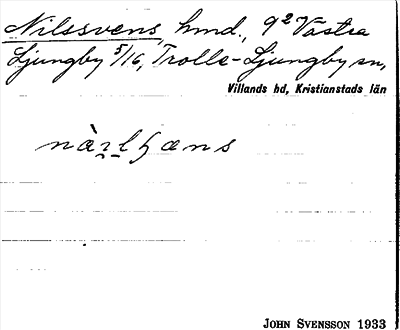 Nilssvens, hmd., 9² Västra
Ljungby 5/16, Trolle-Ljungby sn,
Villands hd, Kristianstads län
nàṟḻꜧæns
JOHN SVENSSON 1933